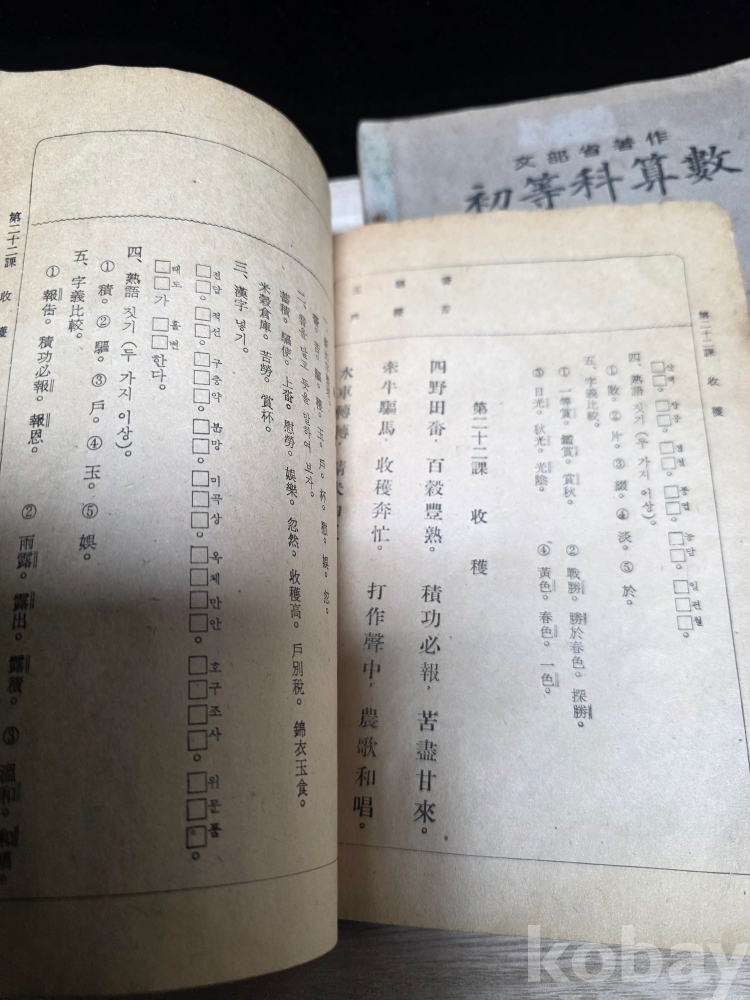 文部省著作
初等科算數
第二十二課 收穫
일편월
四、熟語 짓기 (두 가지 이상)。
② 片。③ 綴。④ 淡。⑤ 於。
五、字義比較。
① 一等賞。鑑賞。賞秋。 ② 戰勝。勝於春色。探勝。
③ 日光。秋光。光陰。 ④ 黃色。春色。一色。
第二十二課 收穫
四野田畓，百穀豐熟。積功必報，苦盡甘來。
牽牛驅馬，收穫奔忙。打作聲中，農歌和唱。
水車轉轉，
玉。戶。杯。慰。娛。忽。
二、音을 달고 뜻을 말하여 보자。
蓄積。驅使。上畓。慰勞。娛樂。忽然。收穫高。戶別稅。錦衣玉食。
米穀倉庫。苦勞。賞杯。
三、漢字 넣기。
전답 적선 구충약 미곡상 옥체만안 호구조사 위문품
□□。□□。□□□。□□。□□□。□□□□。□□□□。□□□。
태도 돌변
□□가 □□한다。
四、熟語 짓기 (두 가지 이상)。
① 積。② 驅。③ 戶。④ 玉。⑤ 娛。
五、字義比較。
① 報告。積功必報。報恩。 ② 雨露。露出。露積。 ③ 溫和。
第二十二課 收穫
kobay